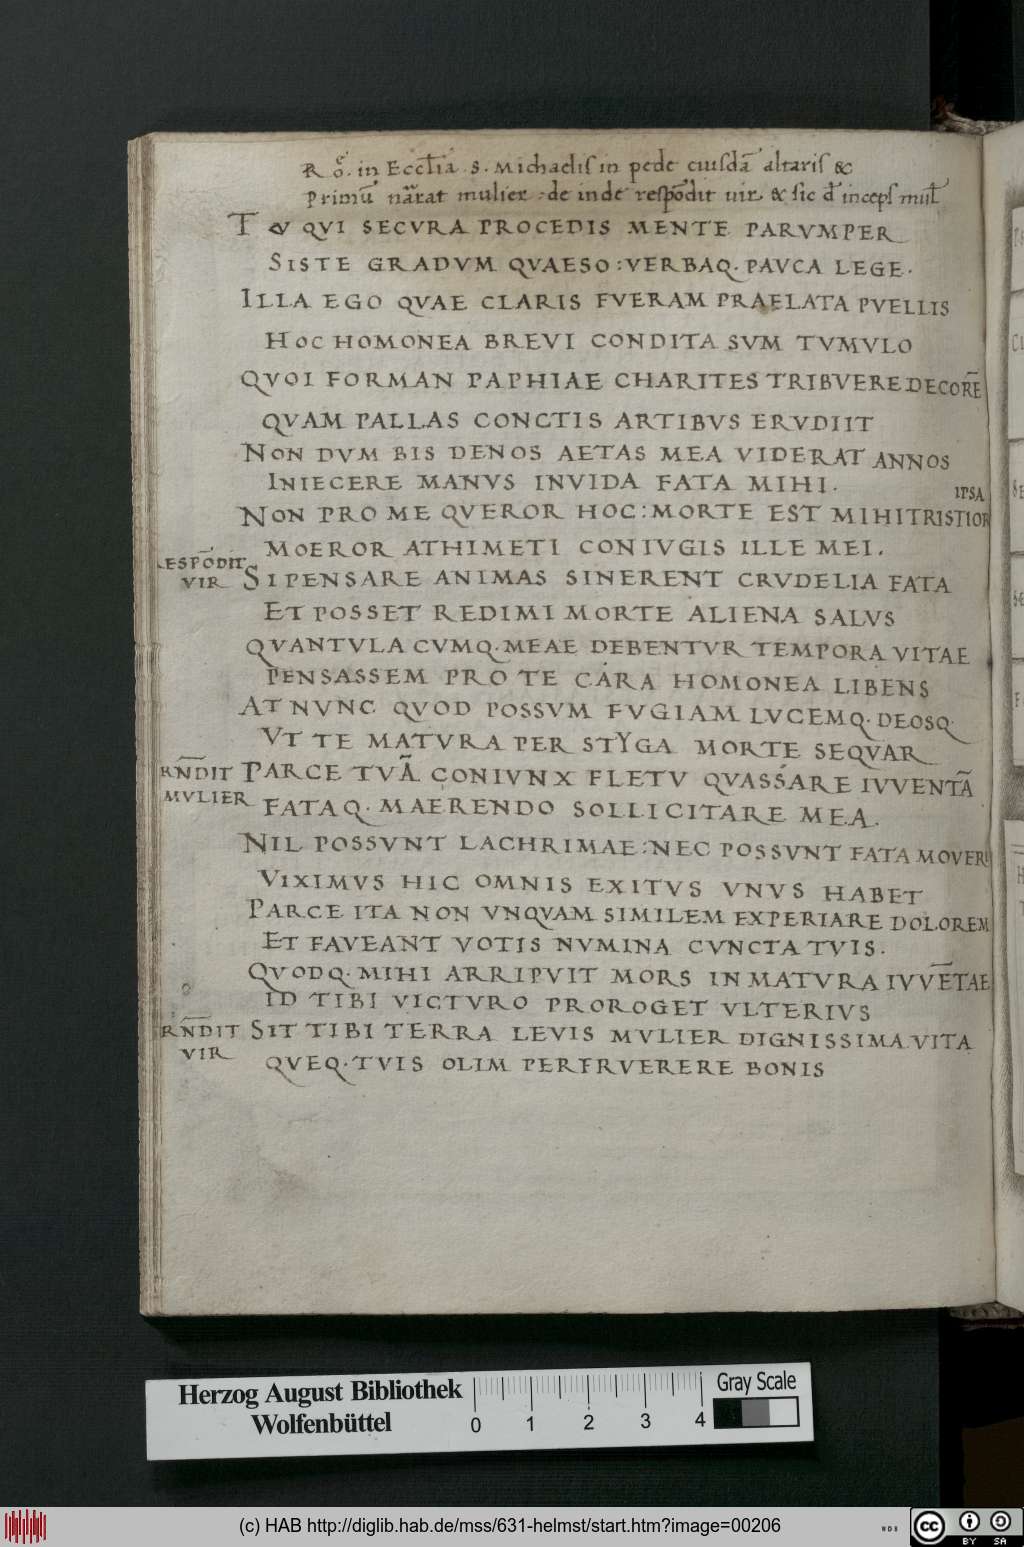 Roͤ. in Eccl̄ia .S. Michaelis in pede eiusdā altaris &
Primū nar̄rat mulier: de inde respōdit uir & sic d̄ inceps mul̄
TU QVI SECVRA PROCEDIS MENTE PARVMPER
SISTE GRADVM QVAESO: VERBAQ. PAVCA LEGE.
ILLA EGO QVAE CLARIS FVERAM PRAELATA PVELLIS
HOC HOMONEA BREVI CONDITA SVM TVMVLO
QVOI FORMAN PAPHIAE CHARITES TRIBVERE DECORĒ
QVAM PALLAS CONCTIS ARTIBVS ERVDIIT
NON DVM BIS DENOS AETAS MEA VIDERAT ANNOS
INIECERE MANVS INVIDA FATA MIHI.
IPSA
NON PRO ME QVEROR HOC: MORTE EST MIHI TRISTIOR
MOEROR ATHIMETI CONIVGIS ILLE MEI.
RESPŌDIT
VIR SI PENSARE ANIMAS SINERENT CRVDELIA FATA
ET POSSET REDIMI MORTE ALIENA SALVS
QVANTVLA CVMQ. MEAE DEBENTVR TEMPORA VITAE
PENSASSEM PRO TE CARA HOMONEA LIBENS
AT NVNC QVOD POSSVM FVGIAM LVCEMQ. DEOSQ.
VT TE MATVRA PER STYGA MORTE SEQVAR
RN̄DIT PARCE TVĀ CONIVNX FLETV QVASSARE IVVENTĀ
MVLIER FATAQ. MAERENDO SOLLICITARE MEA.
NIL POSSVNT LACHRIMAE: NEC POSSVNT FATA MOVERI
VIXIMVS HIC OMNIS EXITVS VNVS HABET
PARCE ITA NON VNQVAM SIMILEM EXPERIARE DOLOREM
ET FAVEANT VOTIS NVMINA CVNCTA TVIS.
QVODQ. MIHI ARRIPVIT MORS INMATVRA IVVĒTAE
ID TIBI VICTVRO PROROGET VLTERIVS
RN̄DIT SIT TIBI TERRA LEVIS MVLIER DIGNISSIMA VITA
VIR QVEQ. TVIS OLIM PERFRVERERE BONIS
Herzog August Bibliothek
Wolfenbüttel
0 1 2 3 4
Gray Scale
(c) HAB http://diglib.hab.de/mss/631-helmst/start.htm?image=00206
WDB
cc BY SA